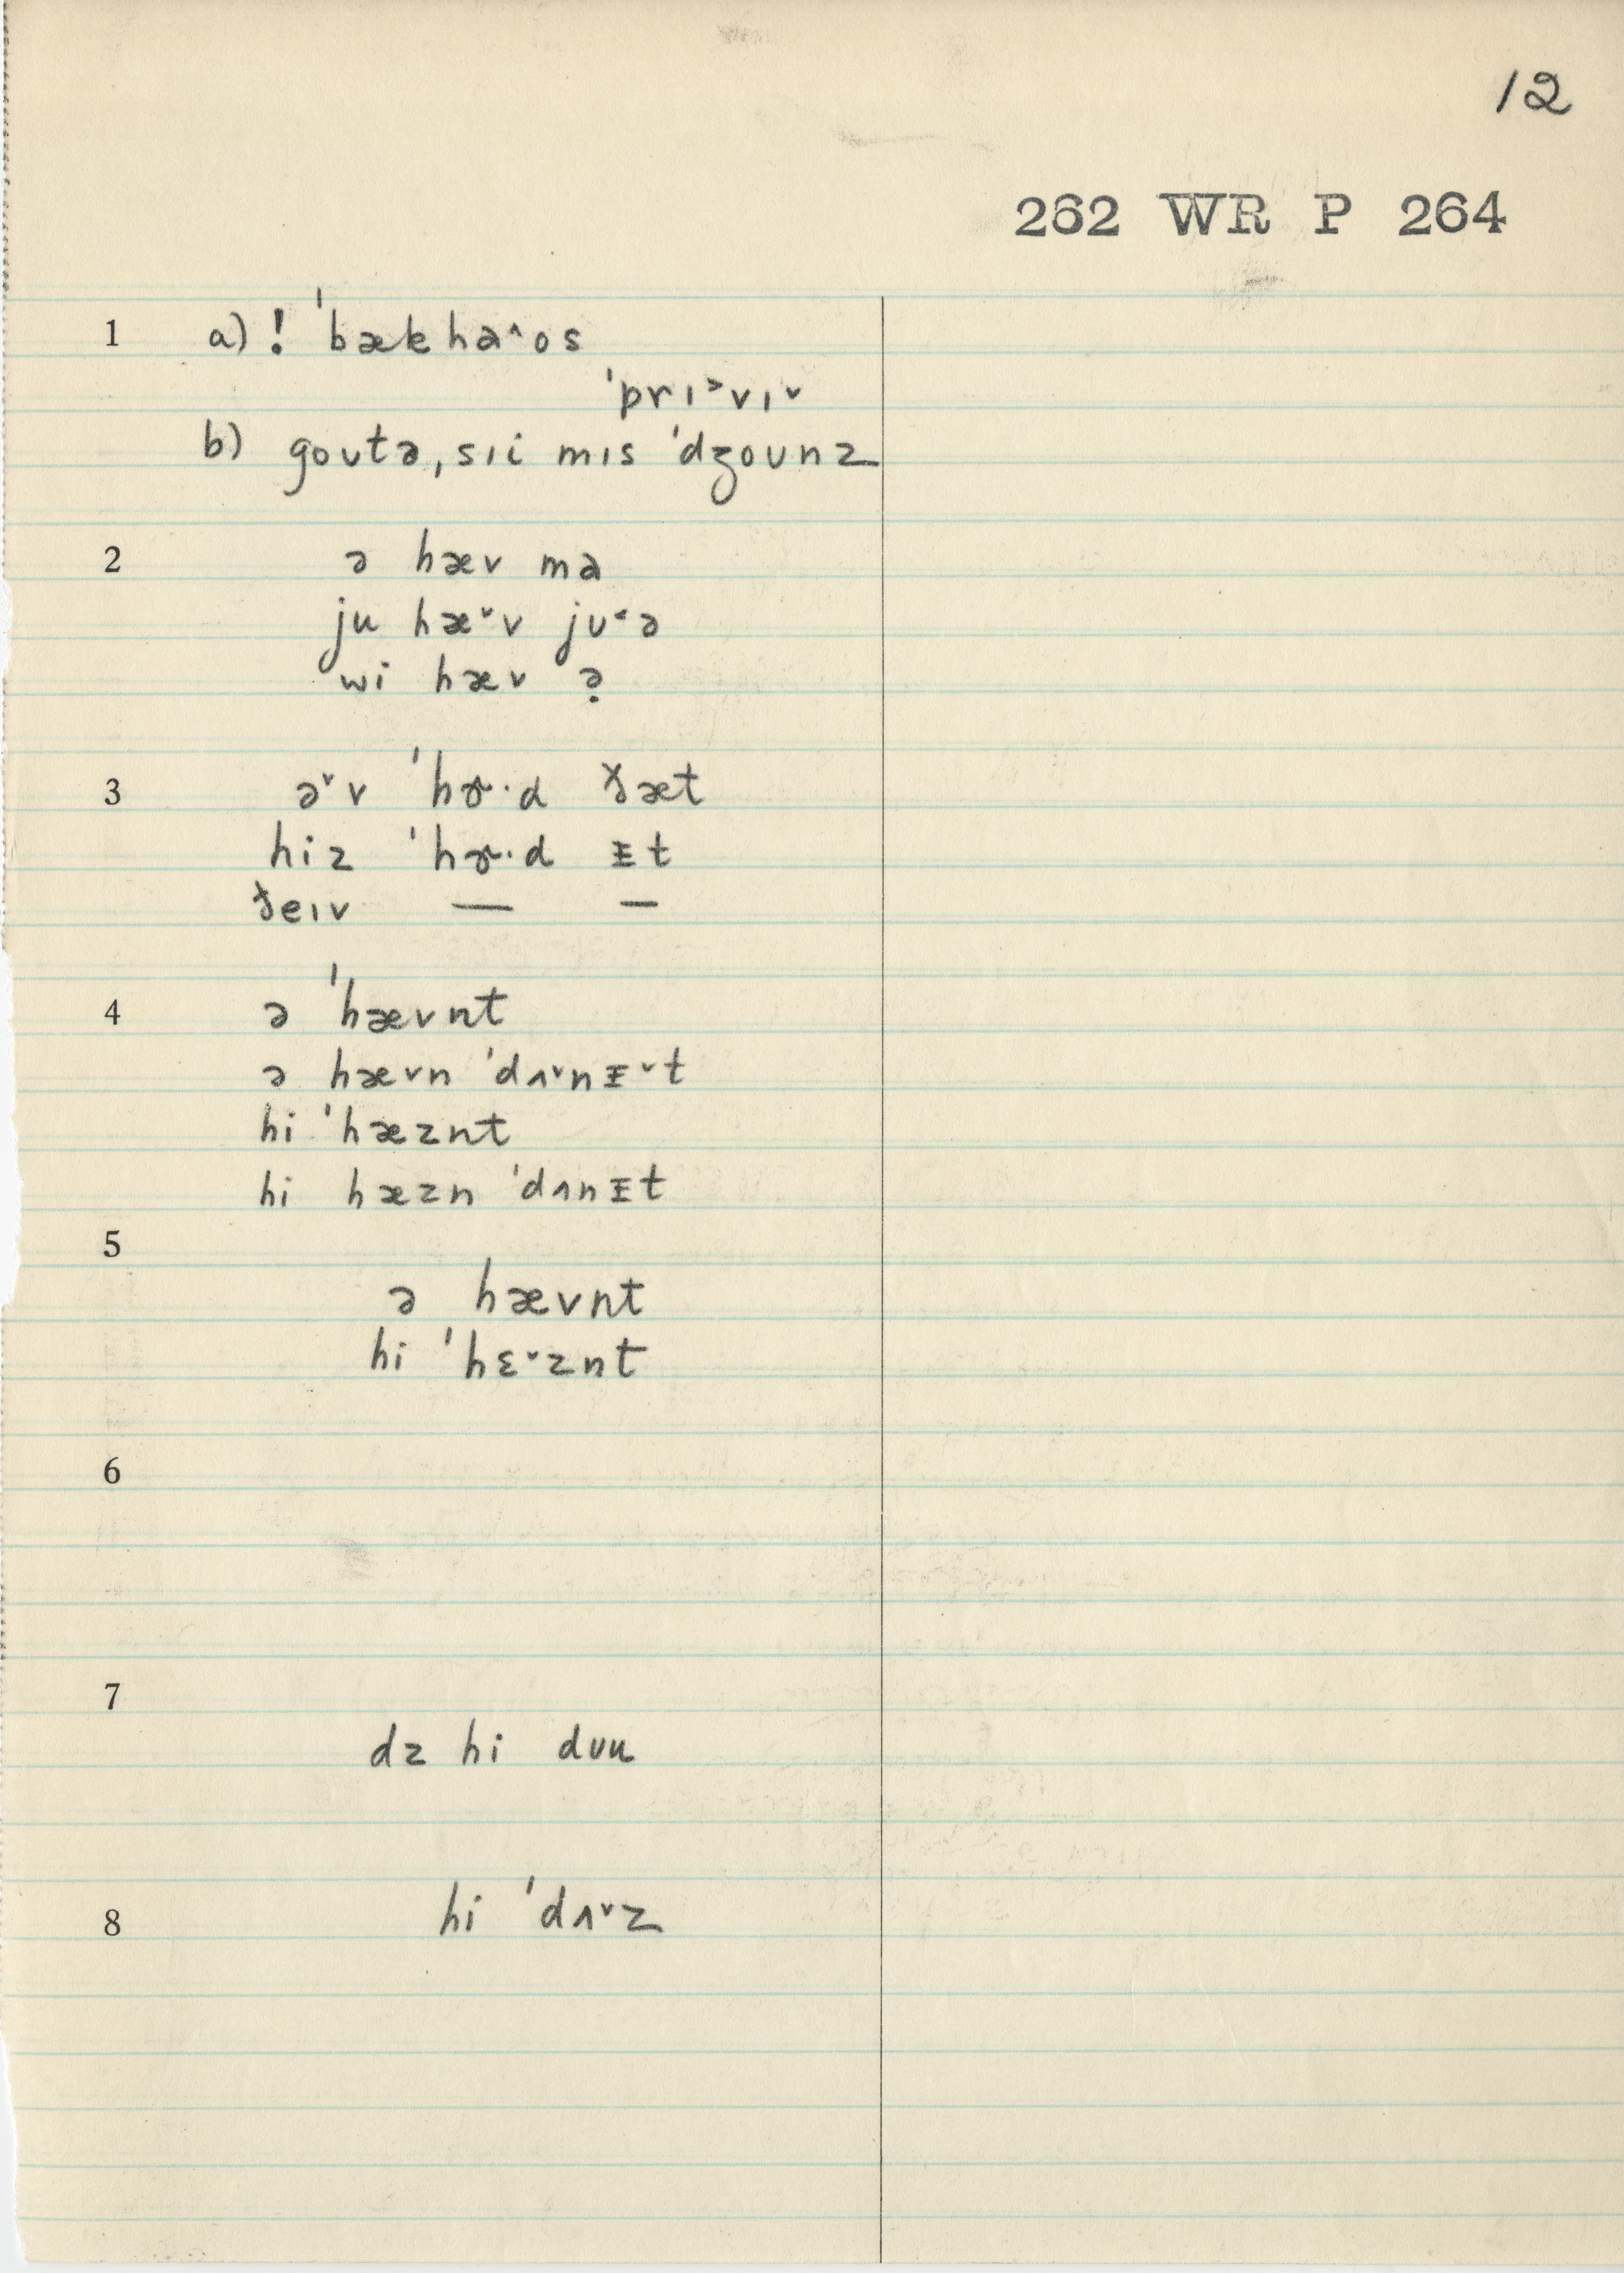 12
262 WR P 264
1 a) ! ˈbækha^os
ˈprɪ˃vɪ˅
b) goʊtə, sɪi mɪs ˈdʒoʊnz
2 ə hæv ma
ju hæ˅v jʊ˂ə
wi hæv ə̣
3 ə˅v ˈhɚ·d ðæt
hiz ˈhɚ·d ᵻt
ðeɪv — —
4 ə ˈhævnt
ə hævn ˈdʌ˅nᵻ˅t
hi ˈhæznt
hi hæzn ˈdʌnᵻt
5
ə hævnt
hi ˈhɛ˅znt
6
7
dz hi dʊu
8 hi ˈdʌ˅z